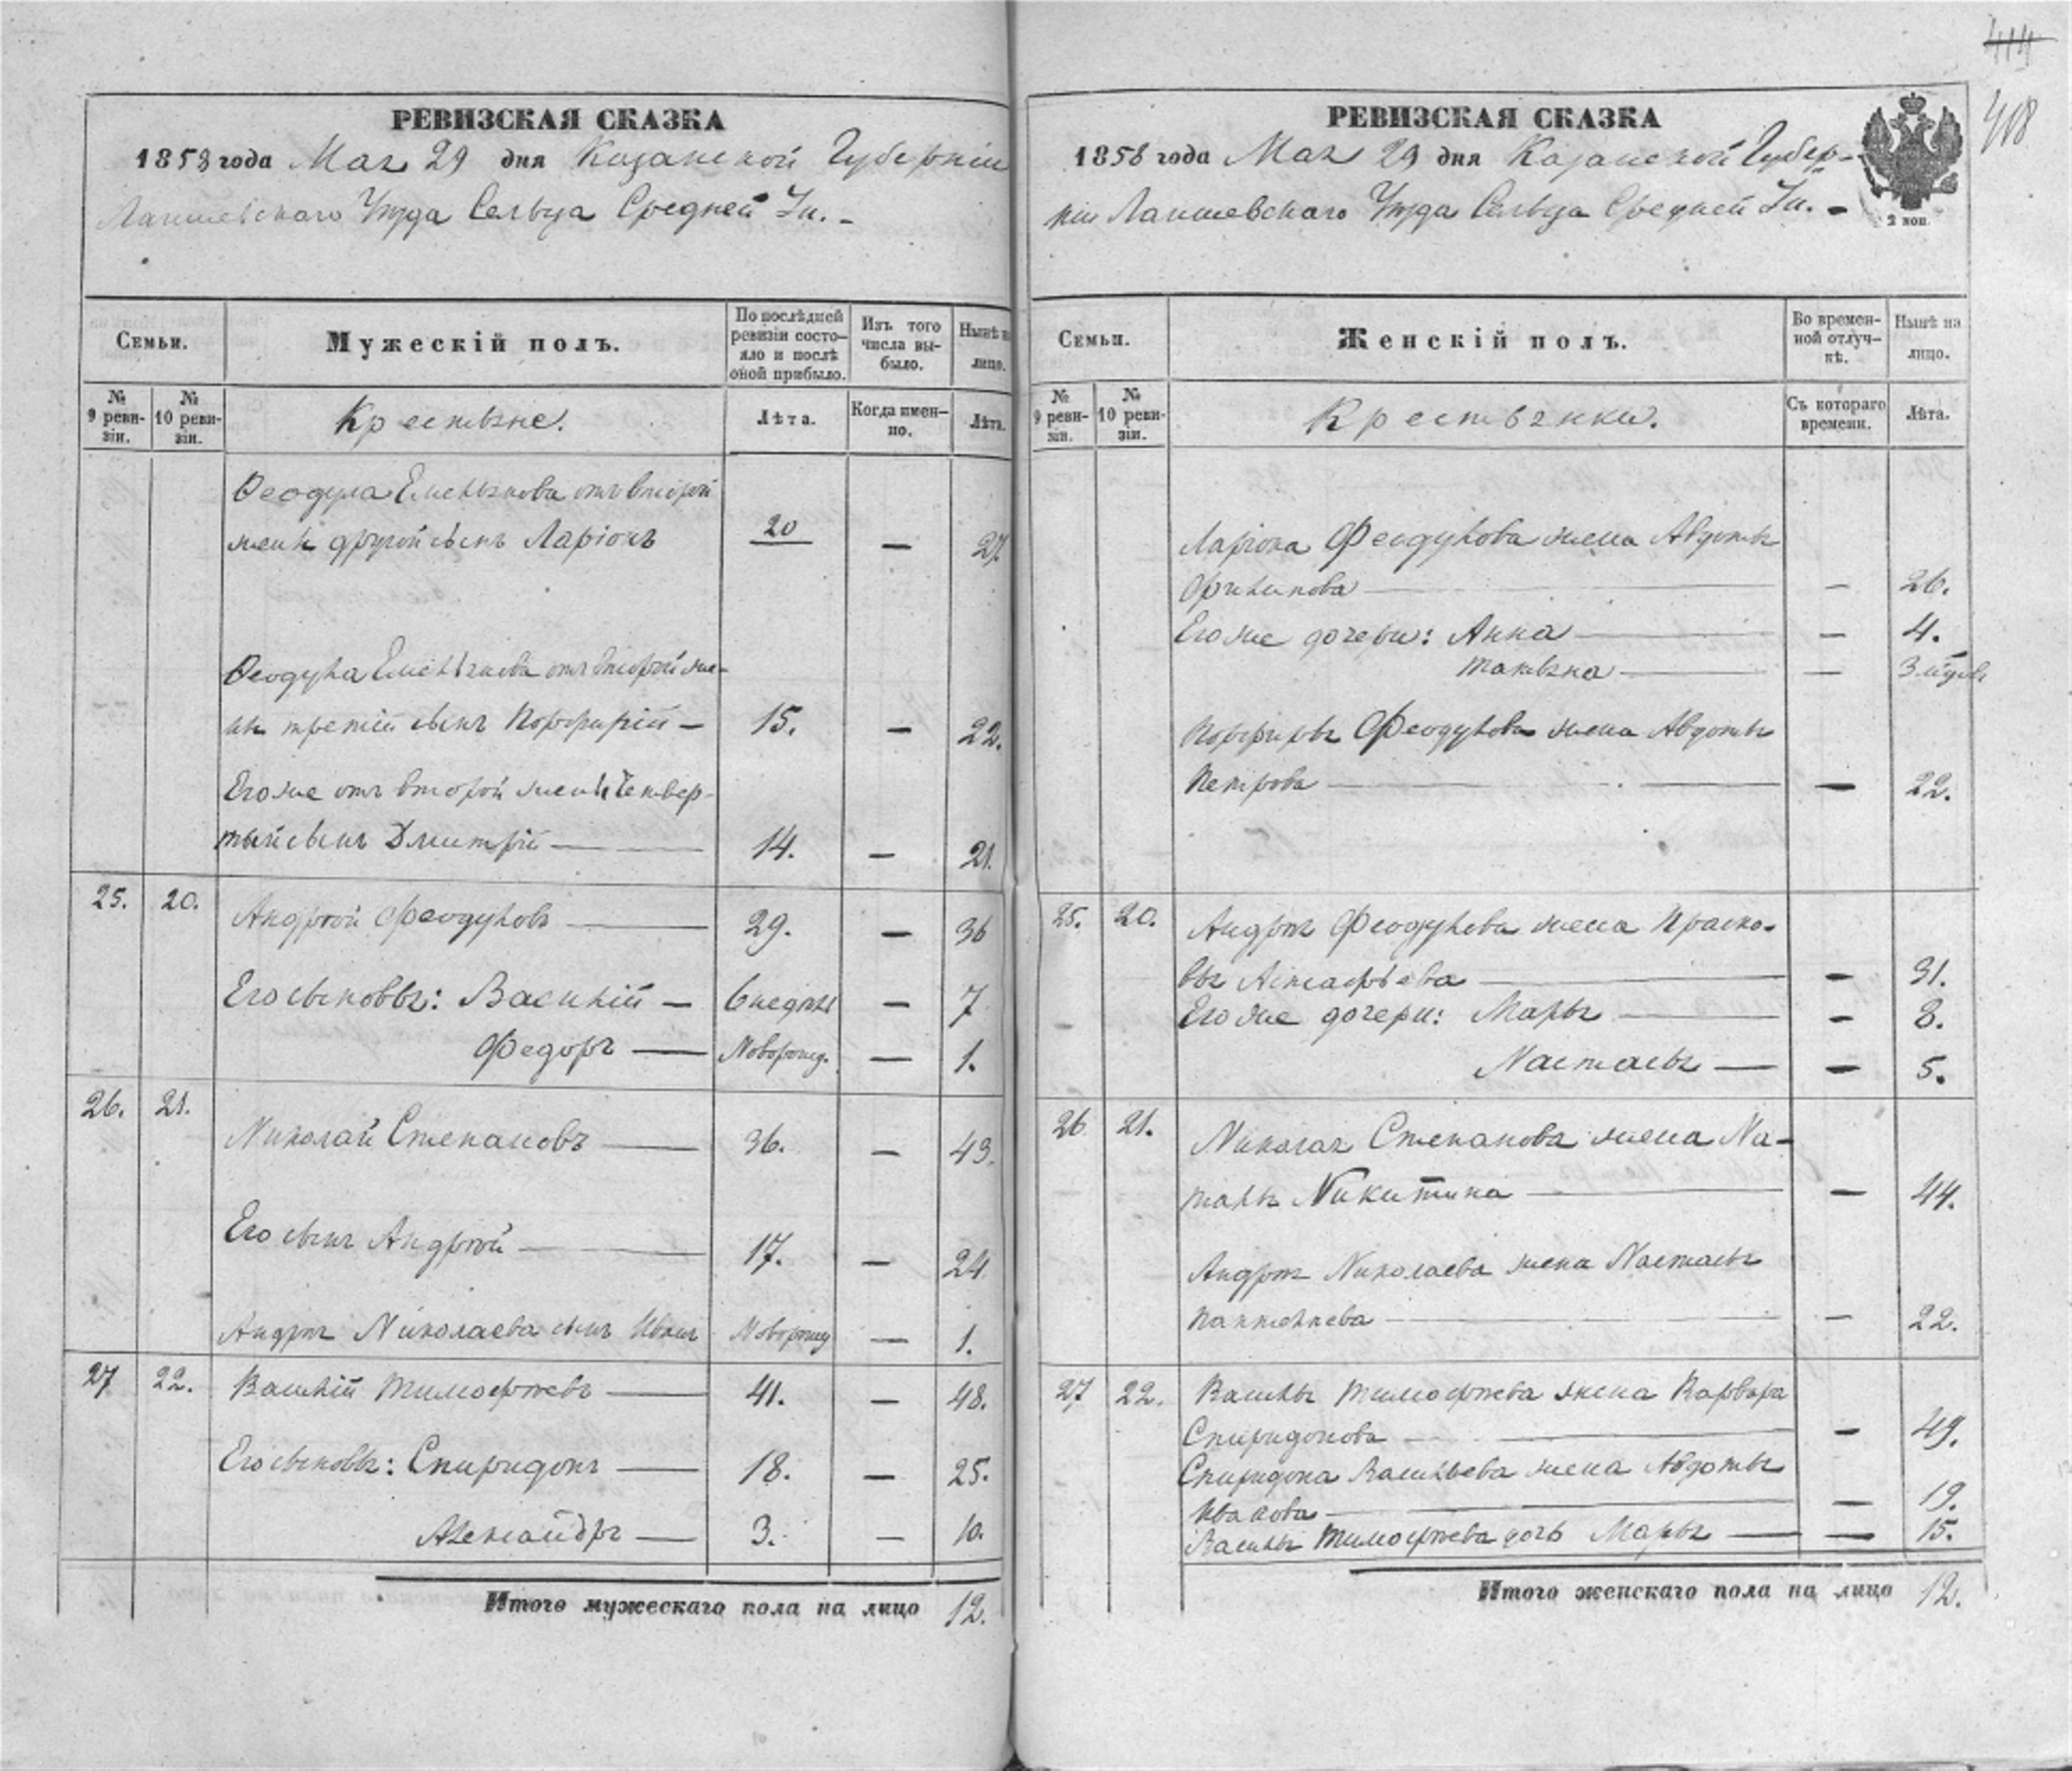 414
408
РЕВИЗСКАЯ СКАЗКА
1858 года Мая 29 дня Казанской Губерніи
Лаишевскаго Уѣзда Сельца Средней Ии. -
Семьи.
Мужескій полъ.
По послѣдней ревизіи состояло и послѣ оной прибыло.
Изъ того числа выбыло.
Нынѣ на лицо.
№ 9 ревизіи.
№ 10 ревизіи.
Крестьяне.
Лѣта.
Когда именно.
Лѣта.
Феодула Емельянова отъ второй
жены другой сынъ Ларіонъ 20 — 27.
Феодула Емельянова отъ второй же-
ны третій сынъ Порфирій — 15. — 22.
Его же отъ второй жены четвер-
тый сынъ Дмитрій — 14. — 21.
25. 20. Андрей Феодуловъ — 29. — 36
Его сыновья: Василій — 6 недѣль — 7
Федоръ — Новорожд. — 1.
26. 21. Николай Степановъ — 36. — 43.
Его сынъ Андрей — 17. — 24
Андрея Николаева сынъ ИванъНоворожд — 1.
27 22. Василій Тимофеевъ — 41. — 48.
Его сыновья: Спиридонъ — 18. — 25.
Александръ — 3. — 10.
Итого мужескаго пола на лицо 12.
РЕВИЗСКАЯ СКАЗКА
1858 года Мая 29 дня Казанской Губер-
ніи Лаишевскаго Уѣзда Сельца Средней Ии. -
2 коп.
Семьи.
Женскій полъ.
Во временной отлучкѣ.
Нынѣ на лицо.
№ 9 ревизіи.
№ 10 ревизіи.
Крестьянки.
Съ котораго времени.
Лѣта.
Ларіона Феодулова жена Авдотья
Филипова — — 26.
Его же дочери: Анна — — 4.
Татьяна — — 3
Порфирья Феодулова жена Авдотья
Петрова — — 22.
25. 20. Андрея Феодулова жена Праско-
вья Астафьева — — 31.
Его же дочери: Марья — — 8.
Настасья — — 5.
26 21. Николая Степанова жена На-
талья Никитина — — 44.
Андрея Николаева жена Настасья
Пантелеева — — 22.
27 22. Василья Тимофеева жена Варвара
Спиридонова — — 49.
Спиридона Васильева жена Авдотья
Иванова — — 19.
Василья Тимофеева дочь Марья — — 15.
Итого женскаго пола на лицо 12.